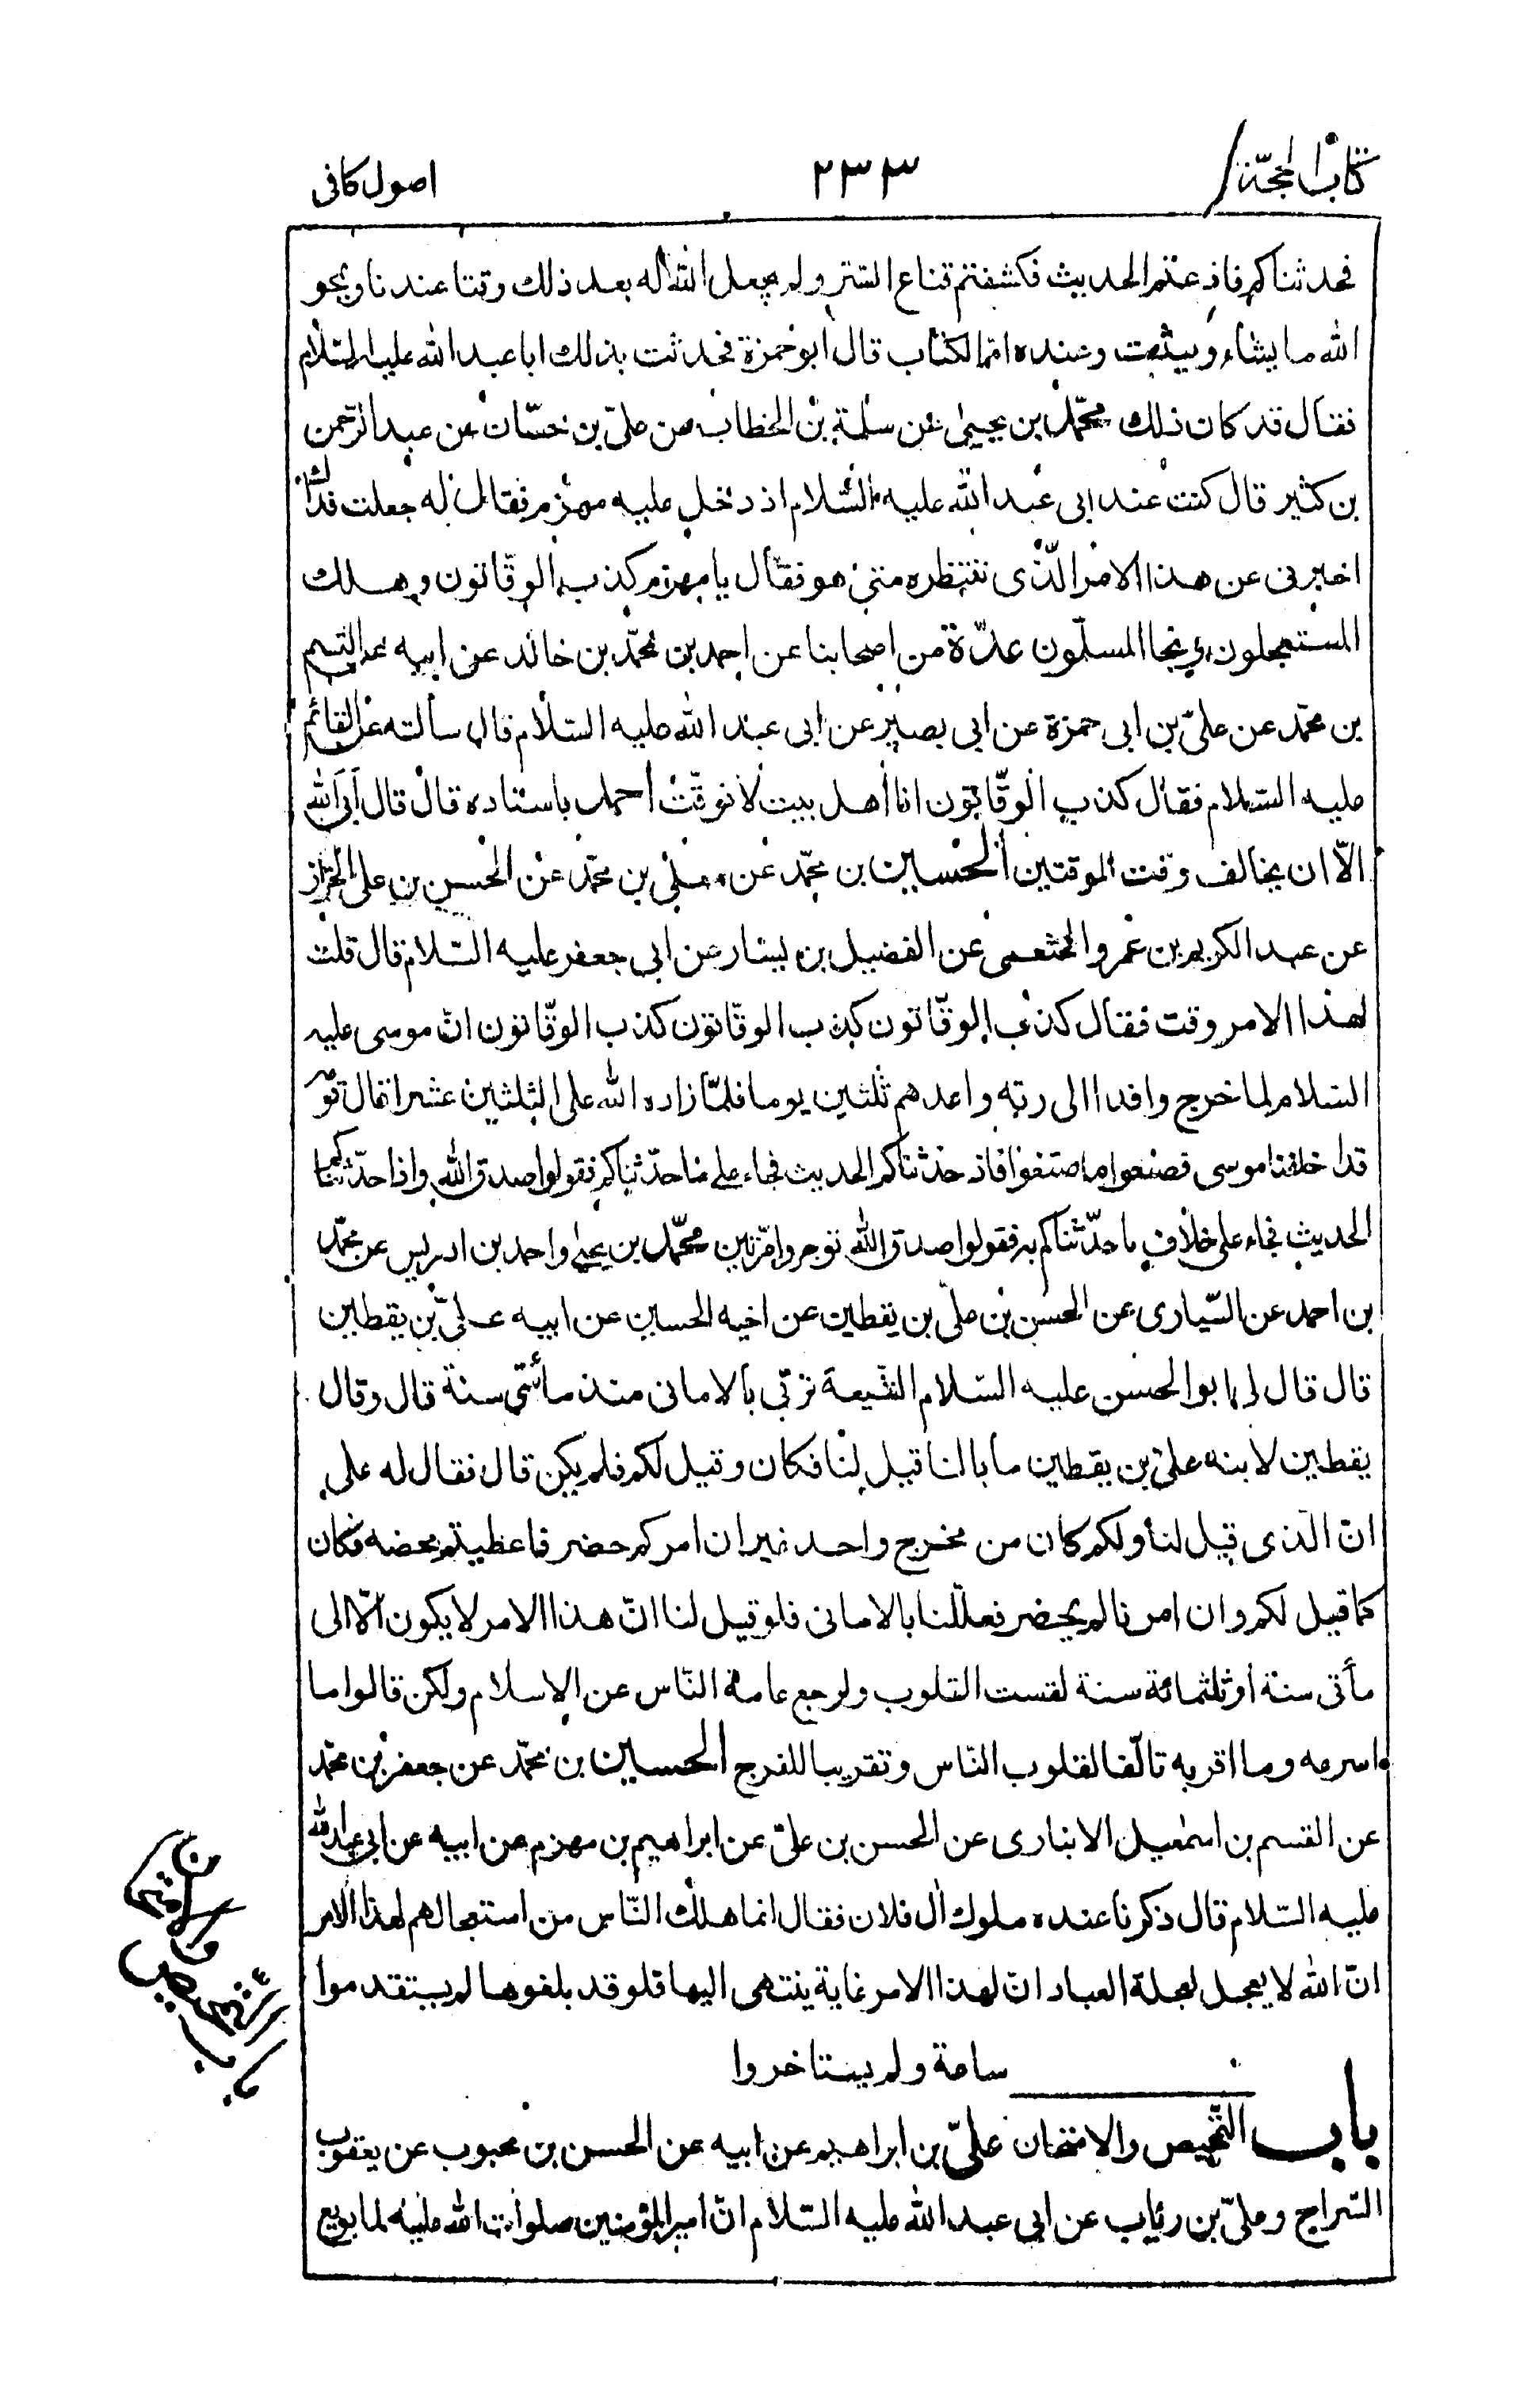 كتاب الحجّة
٢٣٣
اصول كافى
فحدثناكم فاذعتم الحديث فكشفتم قناع الستر ولم يجعل الله له بعد ذلك وقتا عندنا ويمحو
الله ما يشاء ويثبت وعنده ام الكتاب قال ابو حمزة فحدثت بذلك ابا عبد الله عليه السلام
فقال قد كان ذلك محمّد بن يحيى عن سلمة بن الخطاب عن علىّ بن حسّان عن عبد الرّحمن
بن كثير قال كنت عند ابى عبد الله عليه السّلام اذ دخل عليه مهزم فقال له جعلت فداك
اخبرنى عن هذا الامر الّذى ننتظره متى هو فقال يا مهزم كذب الوقّاتون وهلك
المستعجلون ونجا المسلّمون عدّة من اصحابنا عن احمد بن محمّد بن خالد عن ابيه عن القسم
بن محمّد عن علىّ بن ابى حمزة عن ابى بصير عن ابى عبد الله عليه السّلام قال سألته عن القائم
عليه السّلام فقال كذب الوقّاتون انا أهل بيت لا نوقّت أحمد باسناده قال قال أبى الله
الّا ان يخالف وقت الموقتين الحسين بن محمّد عن معلّى بن محمّد عن الحسن بن على الخزاز
عن عبد الكريم بن عمرو الخثعمى عن الفضيل بن يسار عن ابى جعفر عليه السّلام قال قلت
لهذا الامر وقت فقال كذب الوقّاتون كذب الوقّاتون كذب الوقّاتون انّ موسى عليه
السّلام لما خرج وافدا الى ربّه واعدهم ثلثين يوما فلمّا زاده الله على الثلثين عشرا قال قومه
قد اخلفنا موسى فصنعوا ما صنعوا فاذ حدّثناكم الحديث فجاء على ما حدّثناكم فقولوا صدق الله واذا حدّثناكم
الحديث فجاء على خلاف ما حدّثناكم به فقولوا صدق الله توجروا مرّتين محمّد بن يحيى واحمد بن ادريس عن محمّد
بن احمد عن السّيارى عن الحسن بن علىّ بن يقطين عن اخيه الحسين عن ابيه علىّ بن يقطين
قال قال لى ابو الحسن عليه السّلام الشّيعة تربّى بالامانى منذ مأتى سنة قال وقال
يقطين لابنه علىّ بن يقطين ما بالنا قيل لنا فكان وقيل لكم فلم يكن قال فقال له على
انّ الّذى قيل لنا ولكم كان من مخرج واحد غير ان امركم حضر فاعطيتم محضه فكان
كما قيل لكم وان امرنا لم يحضر فعلّلنا بالامانى فلو قيل لنا انّ هذا الامر لا يكون الّا الى
مأتى سنة أو ثلثمائة سنة لقست القلوب ولرجع عامة النّاس عن الاسلام ولكن قالوا ما
اسرعه وما اقربه تالّفا لقلوب النّاس وتقريبا للفرج الحسين بن محمّد عن جعفر بن محمّد
عن القسم بن اسمعيل الانبارى عن الحسن بن علىّ عن ابراهيم بن مهزم عن ابيه عن ابى عبد الله
عليه السّلام قال ذكرنا عنده ملوك آل فلان فقال انما هلك النّاس من استعجالهم لهذا الامر
انّ الله لا يعجل لعجلة العباد انّ لهذا الامر غاية ينتهى اليها فلو قد بلغوها لم يستقدموا
ساعة ولم يستاخروا
باب التّمحيص والامتحان علىّ بن ابراهيم عن ابيه عن الحسن بن محبوب عن يعقوب
السّراج وعلىّ بن رئاب عن ابى عبد الله عليه السّلام انّ امير المؤمنين صلوات الله عليه لما بويع
باب التمحيص
والامتحان